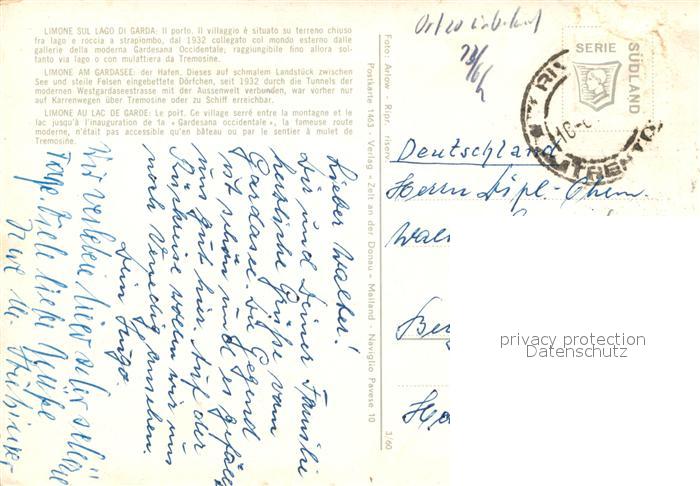 LIMONE SUL LAGO DI GARDA: Il porto. Il villaggio è situato su terreno chiuso
fra lago e roccia a strapiombo, dal 1932 collegato col mondo esterno dalle
gallerie della moderna Gardesana Occidentale; raggiungibile fino allora sol-
tanto via lago o con mulattiera da Tremosine.
LIMONE AM GARDASEE: der Hafen. Dieses auf schmalem Landstück zwischen
See und steile Felsen eingebettete Dörfchen, seit 1932 durch die Tunnels der
modernen Westgardaseestrasse mit der Aussenwelt verbunden, war vorher nur
auf Karrenwegen über Tremosine oder zu Schiff erreichbar.
LIMONE AU LAC DE GARDE: Le port. Ce village serré entre la montagne et le
lac jusqu'à l'inauguration de la « Gardesana occidentale », la fameuse route
moderne, n'était pas accessible qu'en bâteau ou par le sentier à mulet de
Tremosine.
Lieber Walter!
Dir und Deiner Familie
herzliche Grüße vom
Gardasee. Die Gegend
ist schön und es gefällt
uns gut hier. Auf der
Rückreise wollen wir uns
noch Venedig ansehen.
Dein Hugo
Wir verleben hier sehr schöne
Tage. Viele liebe Grüße
Foto: Arlow - Ripr. riserv.
Postkarte 1463 - Verlag - Zelt an der Donau - Mailand - Naviglio Pavese 10
3/60
SERIE
SÜDLAND
TRENTO
Deutschland
Herrn Dipl-Chem.
privacy protection
Datenschutz